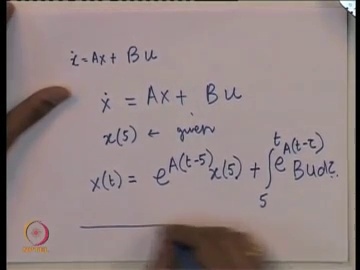 ẋ = Ax + Bu
ẋ = Ax + Bu
x(5) ← given
x(t) = e^{A(t-5)} x(5) + ∫_5^t e^{A(t-τ)} Bu dτ.